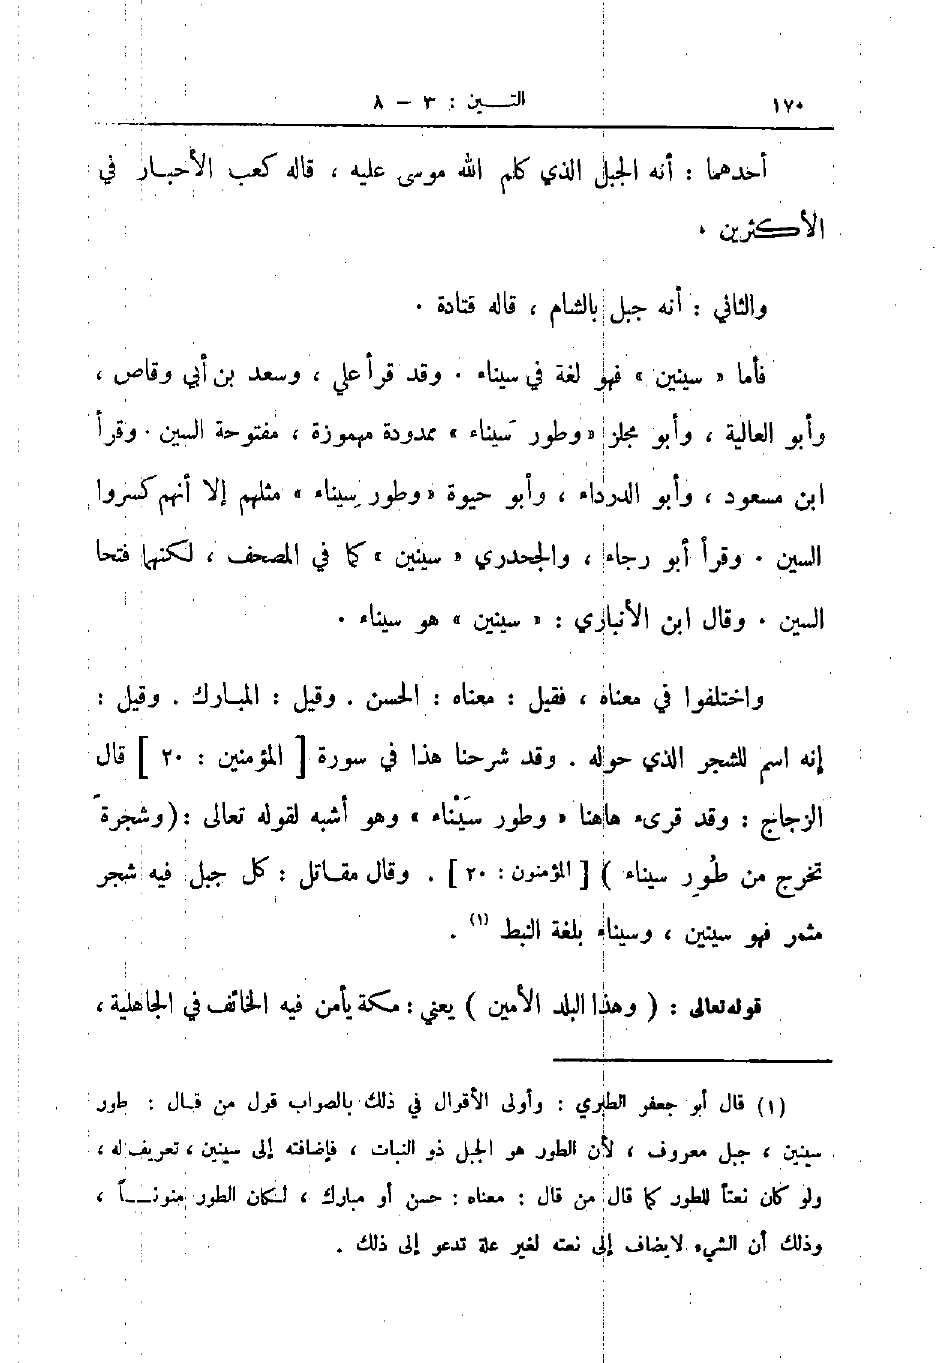 ١٧٠ التـــين : ٣ – ٨
أحدهما : أنه الجبل الذي كلم الله موسى عليه ، قاله كعب الأحبـار في
الأكثرين .
والثاني : أنه جبل بالشام ، قاله قتادة .
فأما « سينين » فهو لغة في سيناء . وقد قرأ علي ، وسعد بن أبي وقاص ،
وأبو العالية ، وأبو مجلز « وطور سَيناء » ممدودة مهموزة ، مفتوحة السين . وقرأ
ابن مسعود ، وأبو الدرداء ، وأبو حيوة « وطور سِيناء » مثلهم إلا أنهم كسروا
السين . وقرأ أبو رجاء ، والجحدري « سينين » كما في المصحف ، لكنهما فتحا
السين . وقال ابن الأنباري : « سينين » هو سيناء .
واختلفوا في معناه ، فقيل : معناه : الحسن . وقيل : المبارك . وقيل :
إنه اسم للشجر الذي حوله . وقد شرحنا هذا في سورة [ المؤمنين : ٢٠ ] قال
الزجاج : وقد قرىء هاهنا « وطور سَيْناء » وهو أشبه لقوله تعالى : ( وشجرةً
تخرج من طُورِ سيناء ) [ المؤمنون : ٢٠ ] . وقال مقـاتل : كل جبل فيه شجر
مثمر فهو سينين ، وسيناء بلغة النبط (١) .
قوله تعالى : ( وهذا البلد الأمين ) يعني : مكة يأمن فيه الخائف في الجاهلية ،
(١) قال أبو جعفر الطبري : وأولى الأقوال في ذلك بالصواب قول من قـال : طور
سينين ، جبل معروف ، لأن الطور هو الجبل ذو النبات ، فإضافته إلى سينين ، تعريف له ،
ولو كان نعتاً للطور كما قال من قال : معناه : حسن أو مبارك ، لـكان الطور منونـــاً ،
وذلك أن الشيء لا يضاف إلى نعته لغير علة تدعو إلى ذلك .